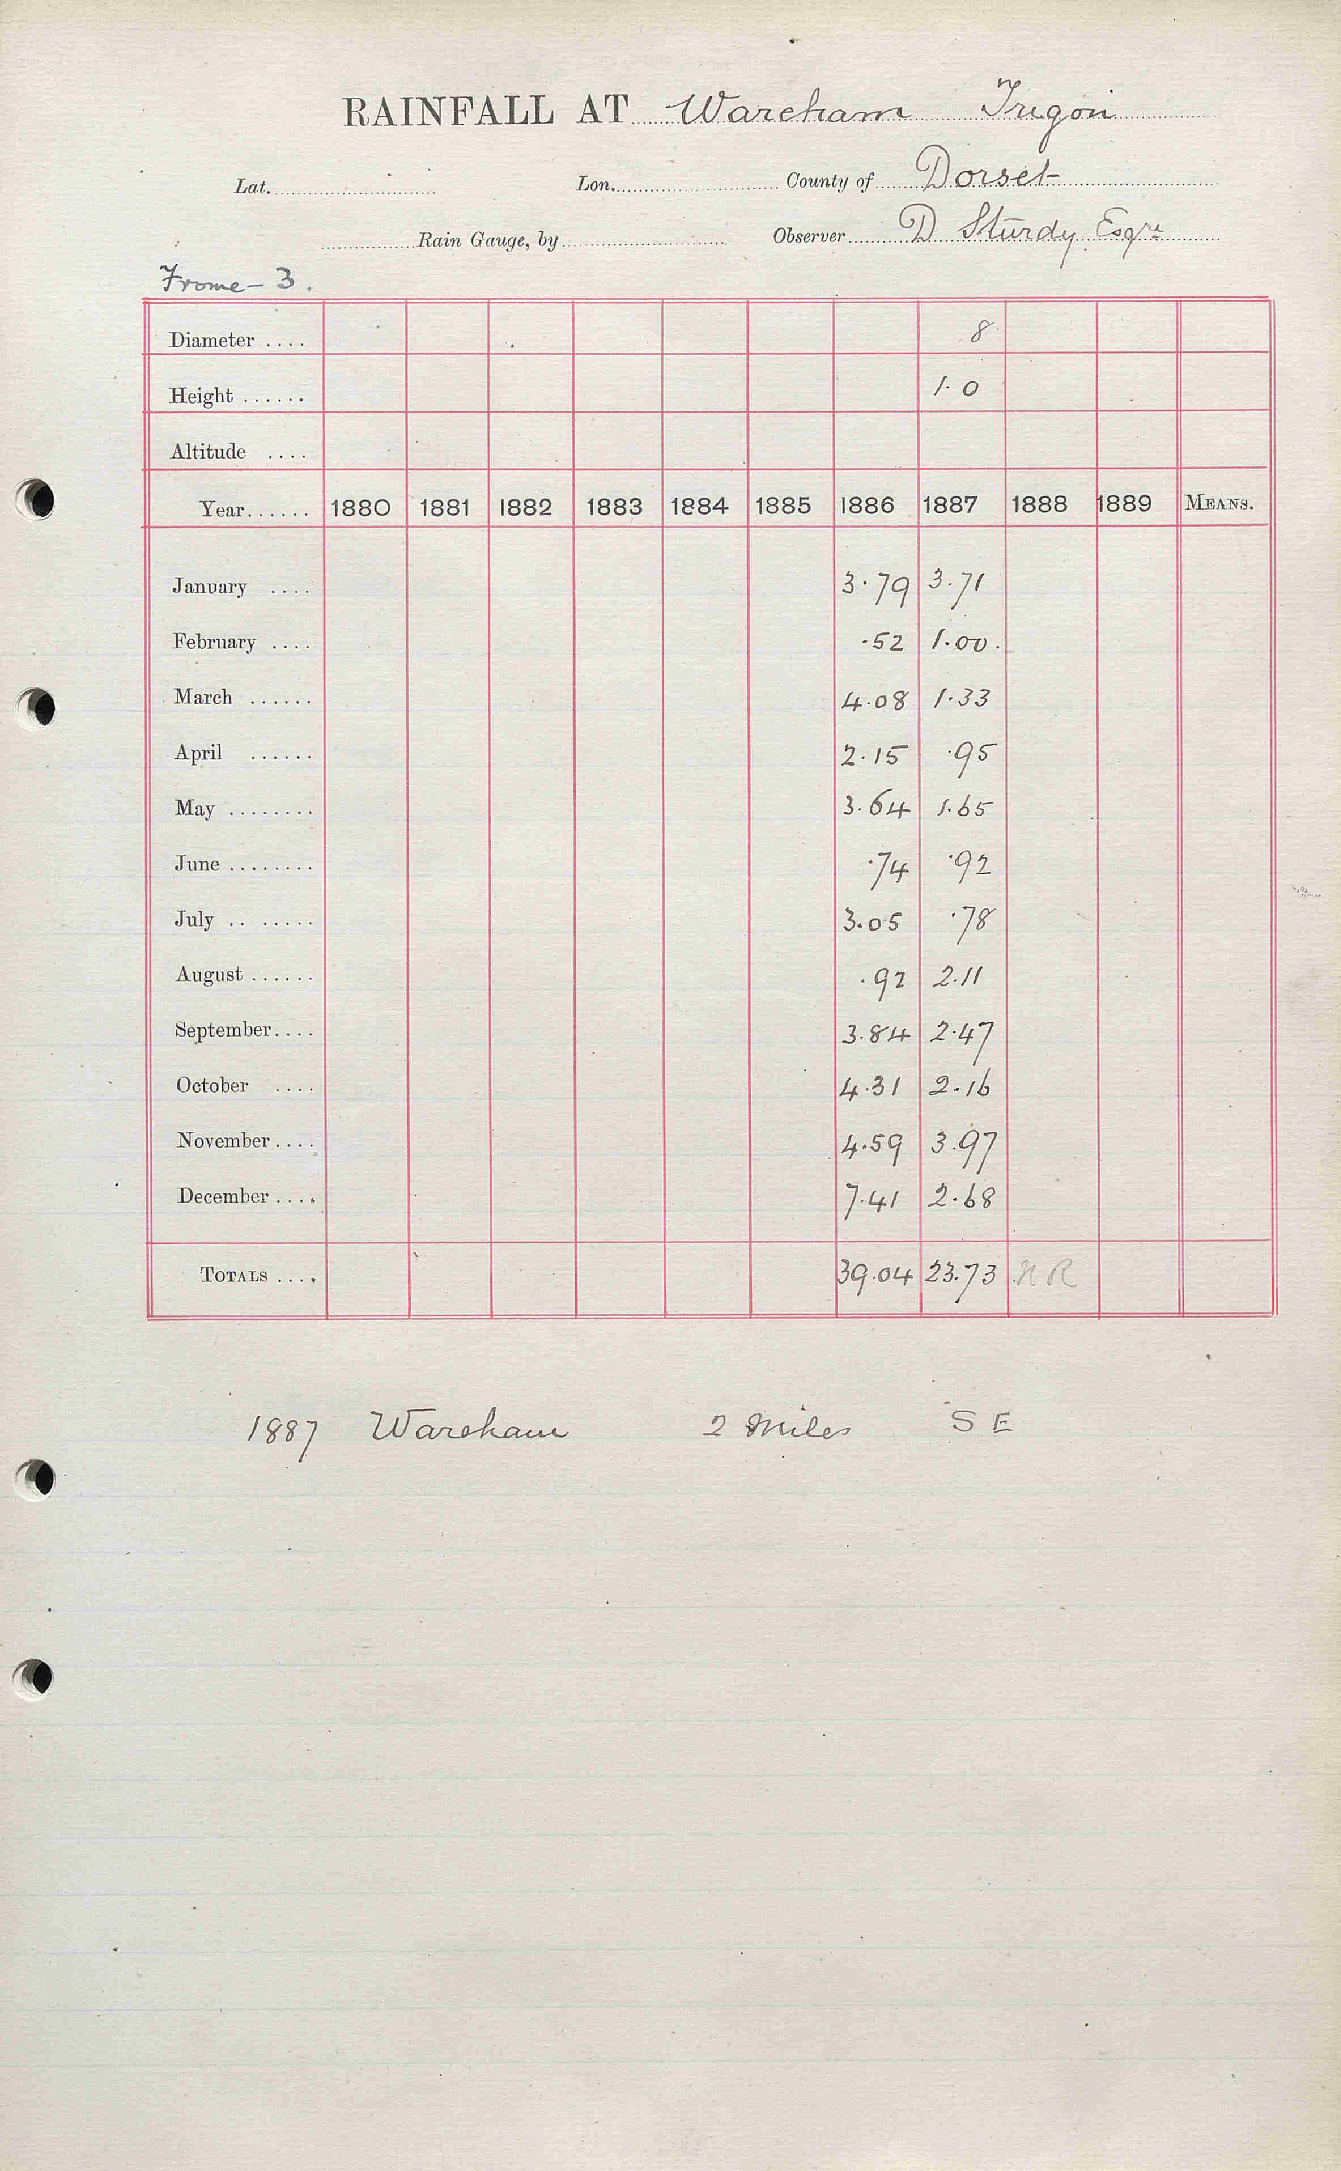 RAINFALL AT Wareham Trigon
Lat. Lon. County of Dorset
Rain Gauge, by Observer D Sturdy Esqre
Frome - 3.
Diameter .... 8
Height ...... 1.0
Altitude ....
Year...... 1880 1881 1882 1883 1884 1885 1886 1887 1888 1889 MEANS.
January .... 3.79 3.71
February .... .52 1.00.
March ...... 4.08 1.33
April ...... 2.15 .95
May ........ 3.64 1.65
June ........ .74 .92
July .. ...... 3.05 .78
August ...... .92 2.11
September.... 3.84 2.47
October .... 4.31 2.16
November .... 4.59 3.97
December .... 7.41 2.68
TOTALS .... 39.04 23.73 N R
1887 Wareham 2 Miles S E